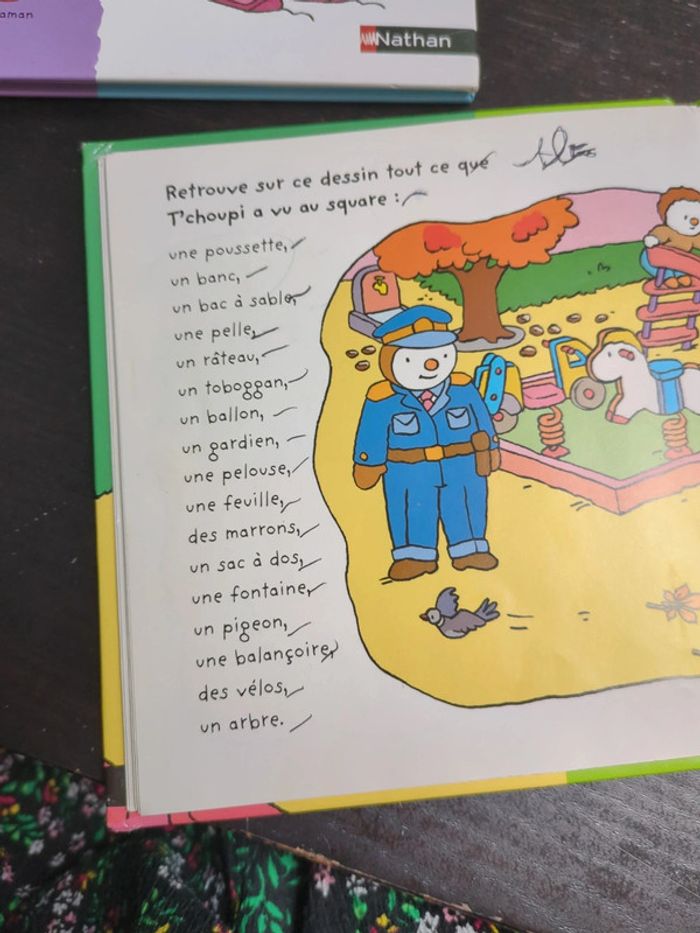 aman
Nathan
Retrouve sur ce dessin tout ce que
T'choupi a vu au square :
une poussette,
un banc,
un bac à sable,
une pelle,
un râteau,
un toboggan,
un ballon,
un gardien,
une pelouse,
une feuille,
des marrons,
un sac à dos,
une fontaine,
un pigeon,
une balançoire,
des vélos,
un arbre.